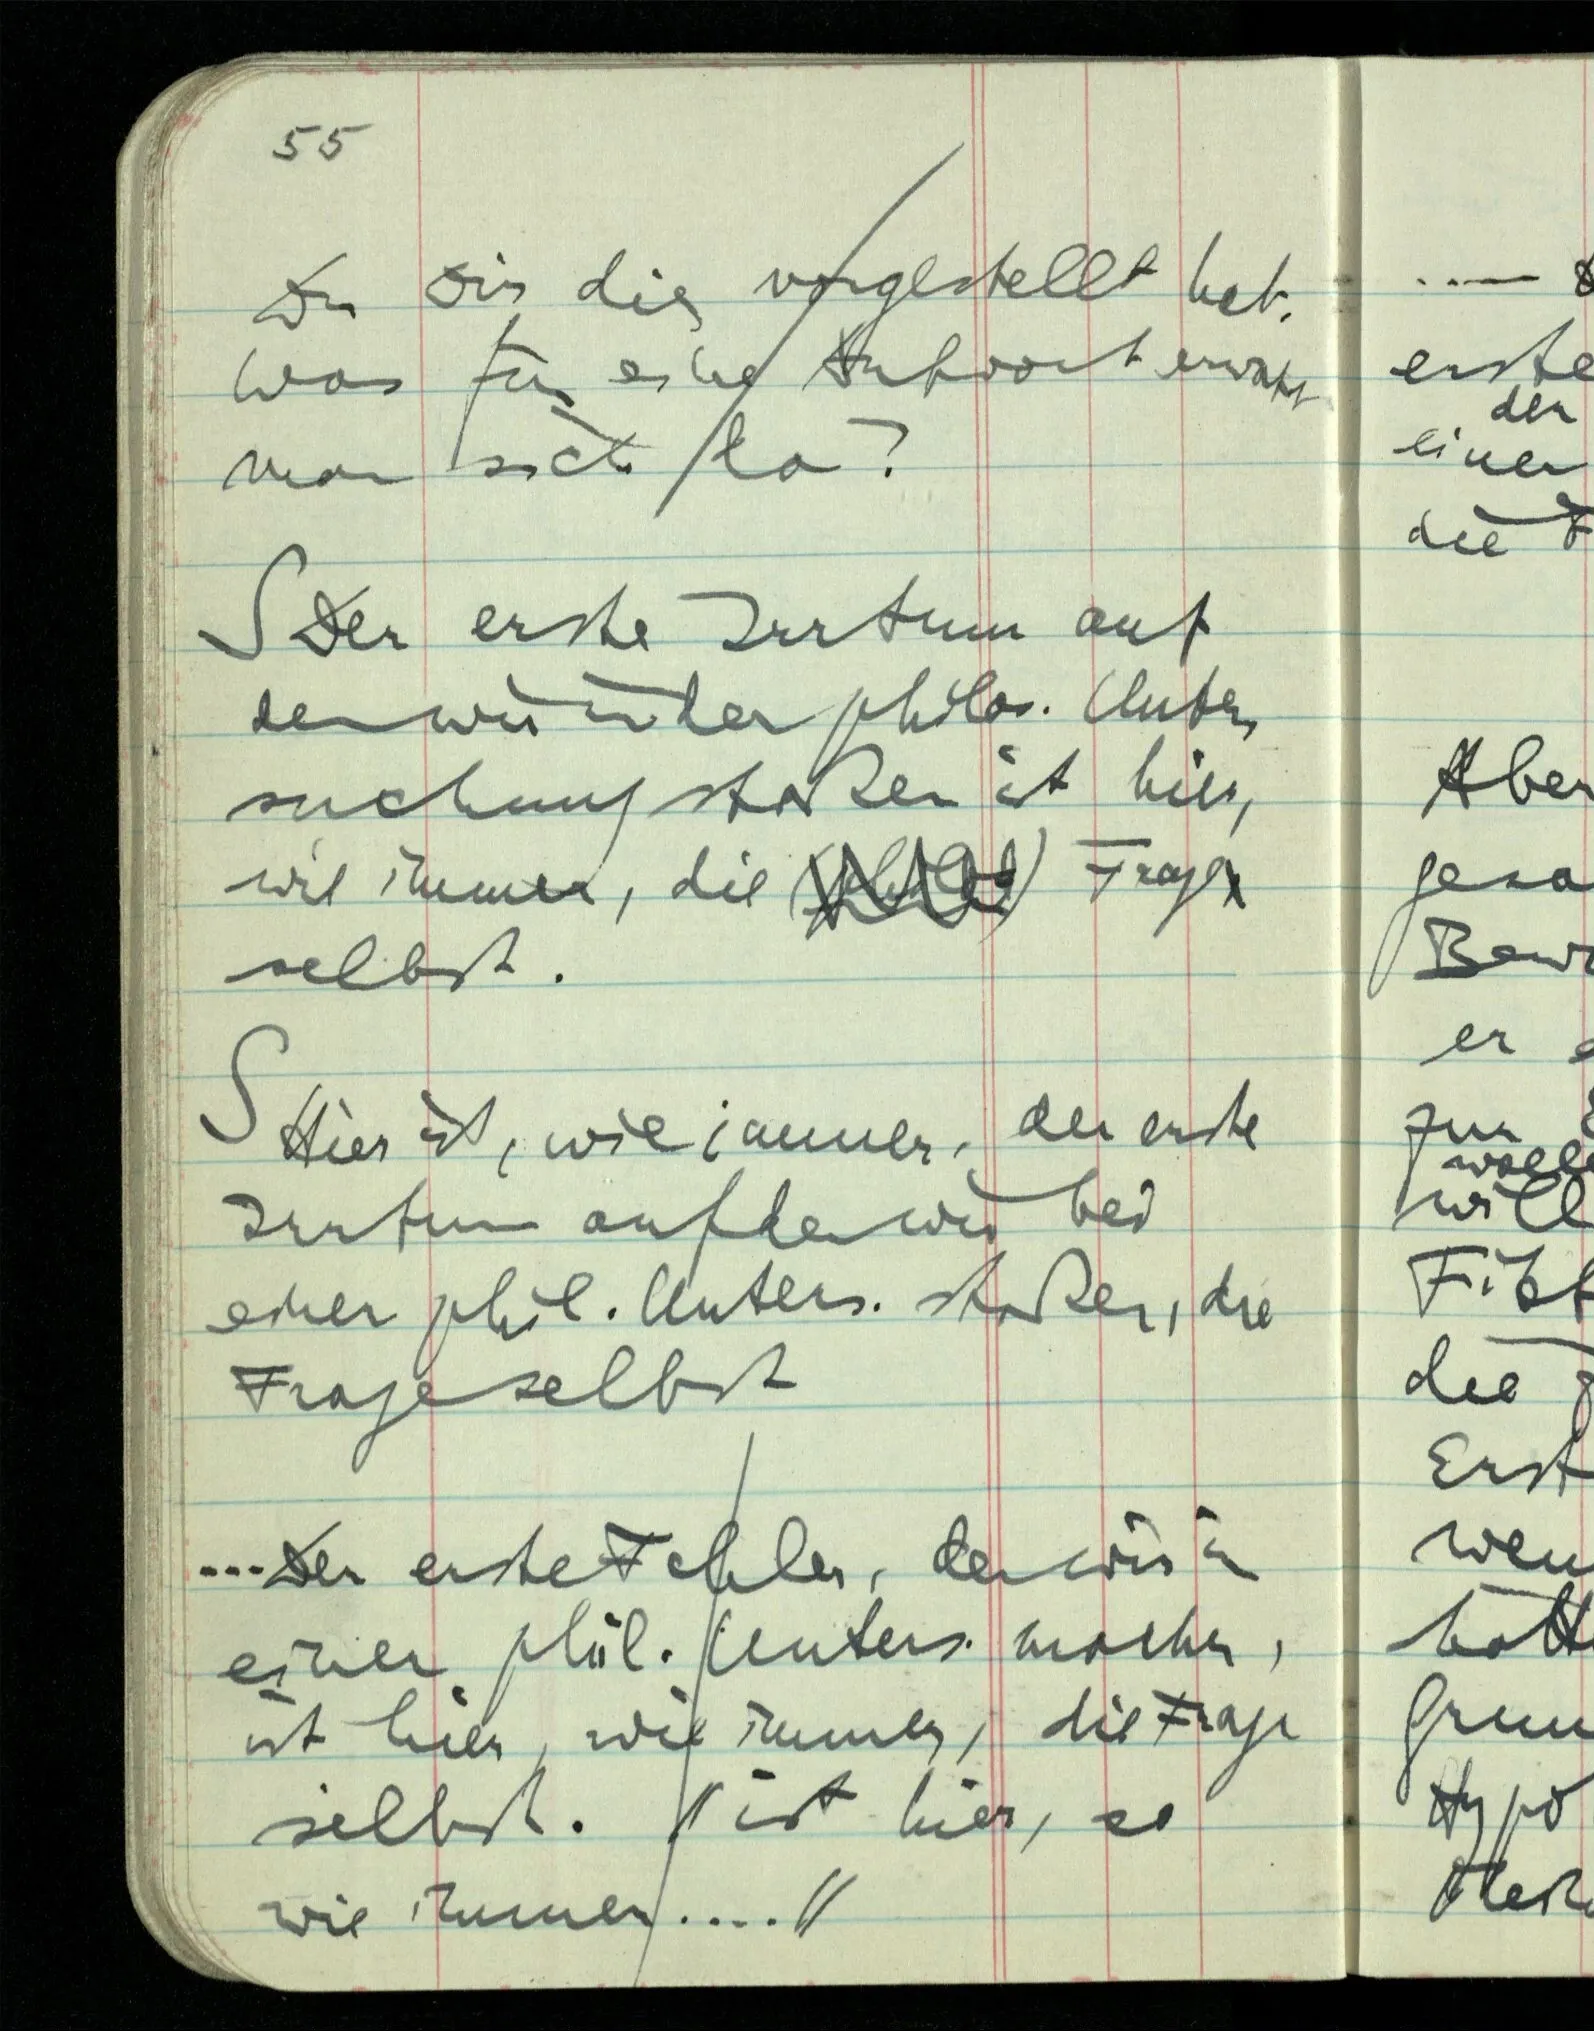 55
Du Dir dies vorgestellt hast.
Was für eine Antwort erwartet
man sich da?
S Der erste Irrtum auf
den wir in der philos. Unter
suchung stoßen ist hier,
wie immer, die Frage
selbst.
S Hier ist, wie immer, der erste
Irrtum auf den wir bei
einer phil. Unters. stoßen, die
Frage selbst
... Der erste Fehler, den wir in
einer phil. Unters. machen,
ist hier, wie immer, die Frage
selbst. // ist hier, so
wie immer .... //
....
erste
der
einen
die
Aber
er
zur
will
die